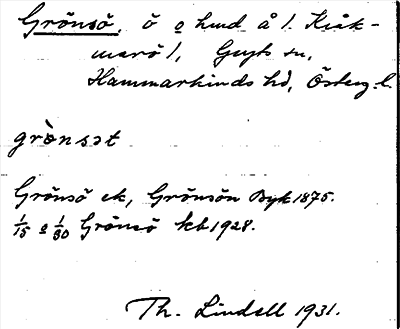 Grönsö, ö o hmd å /. Kråk-
marö /, Gryts sn,
Hammarkinds hd, Österg. l.
grònsət
Grönsö ek, Grönsön Byk 1875.
1/15 o 1/30 Grönsö kb 1928.
Th. Lindell 1931.